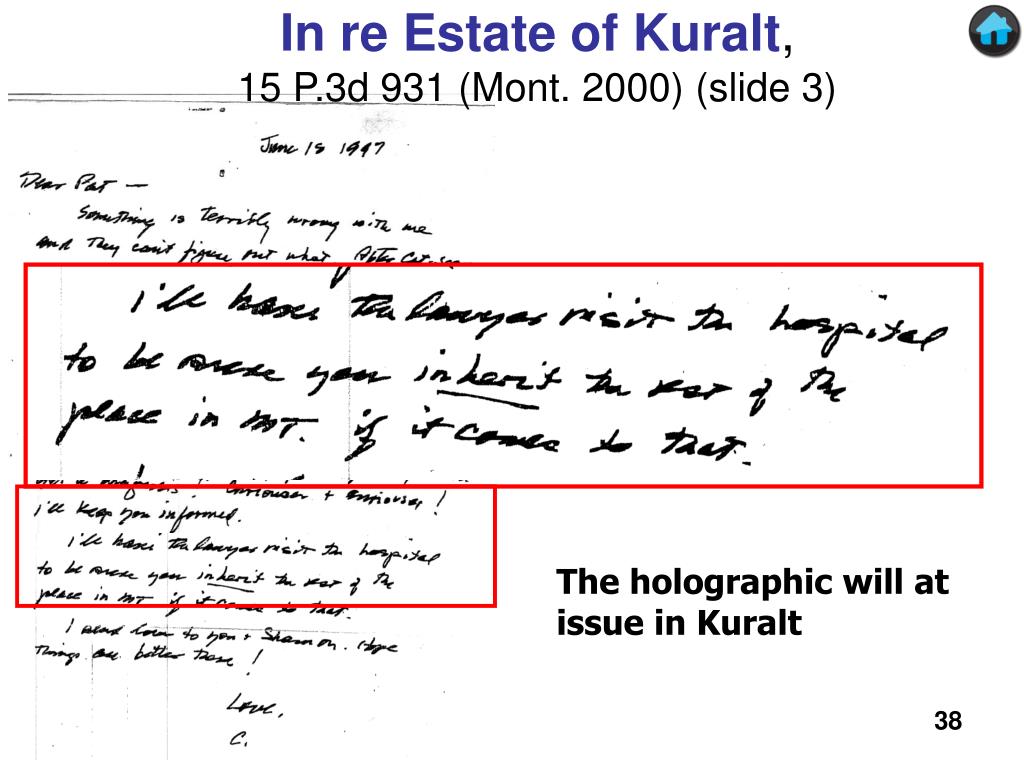 In re Estate of Kuralt,
15 P.3d 931 (Mont. 2000) (slide 3)
June 18 1997
Dear Pat —
Something is terribly wrong with me
and they can't figure out what. After
i'll have the lawyer visit the hospital
to be sure you inherit the rest of the
place in MT. if it comes to that.
! Curiouser + curiouser!
i'll keep you informed.
i'll have the lawyer visit the hospital
to be sure you inherit the rest of the
place in MT. if it comes to that.
I send love to you + Shannon. Hope
things are better there!
Love,
C.
The holographic will at
issue in Kuralt
38